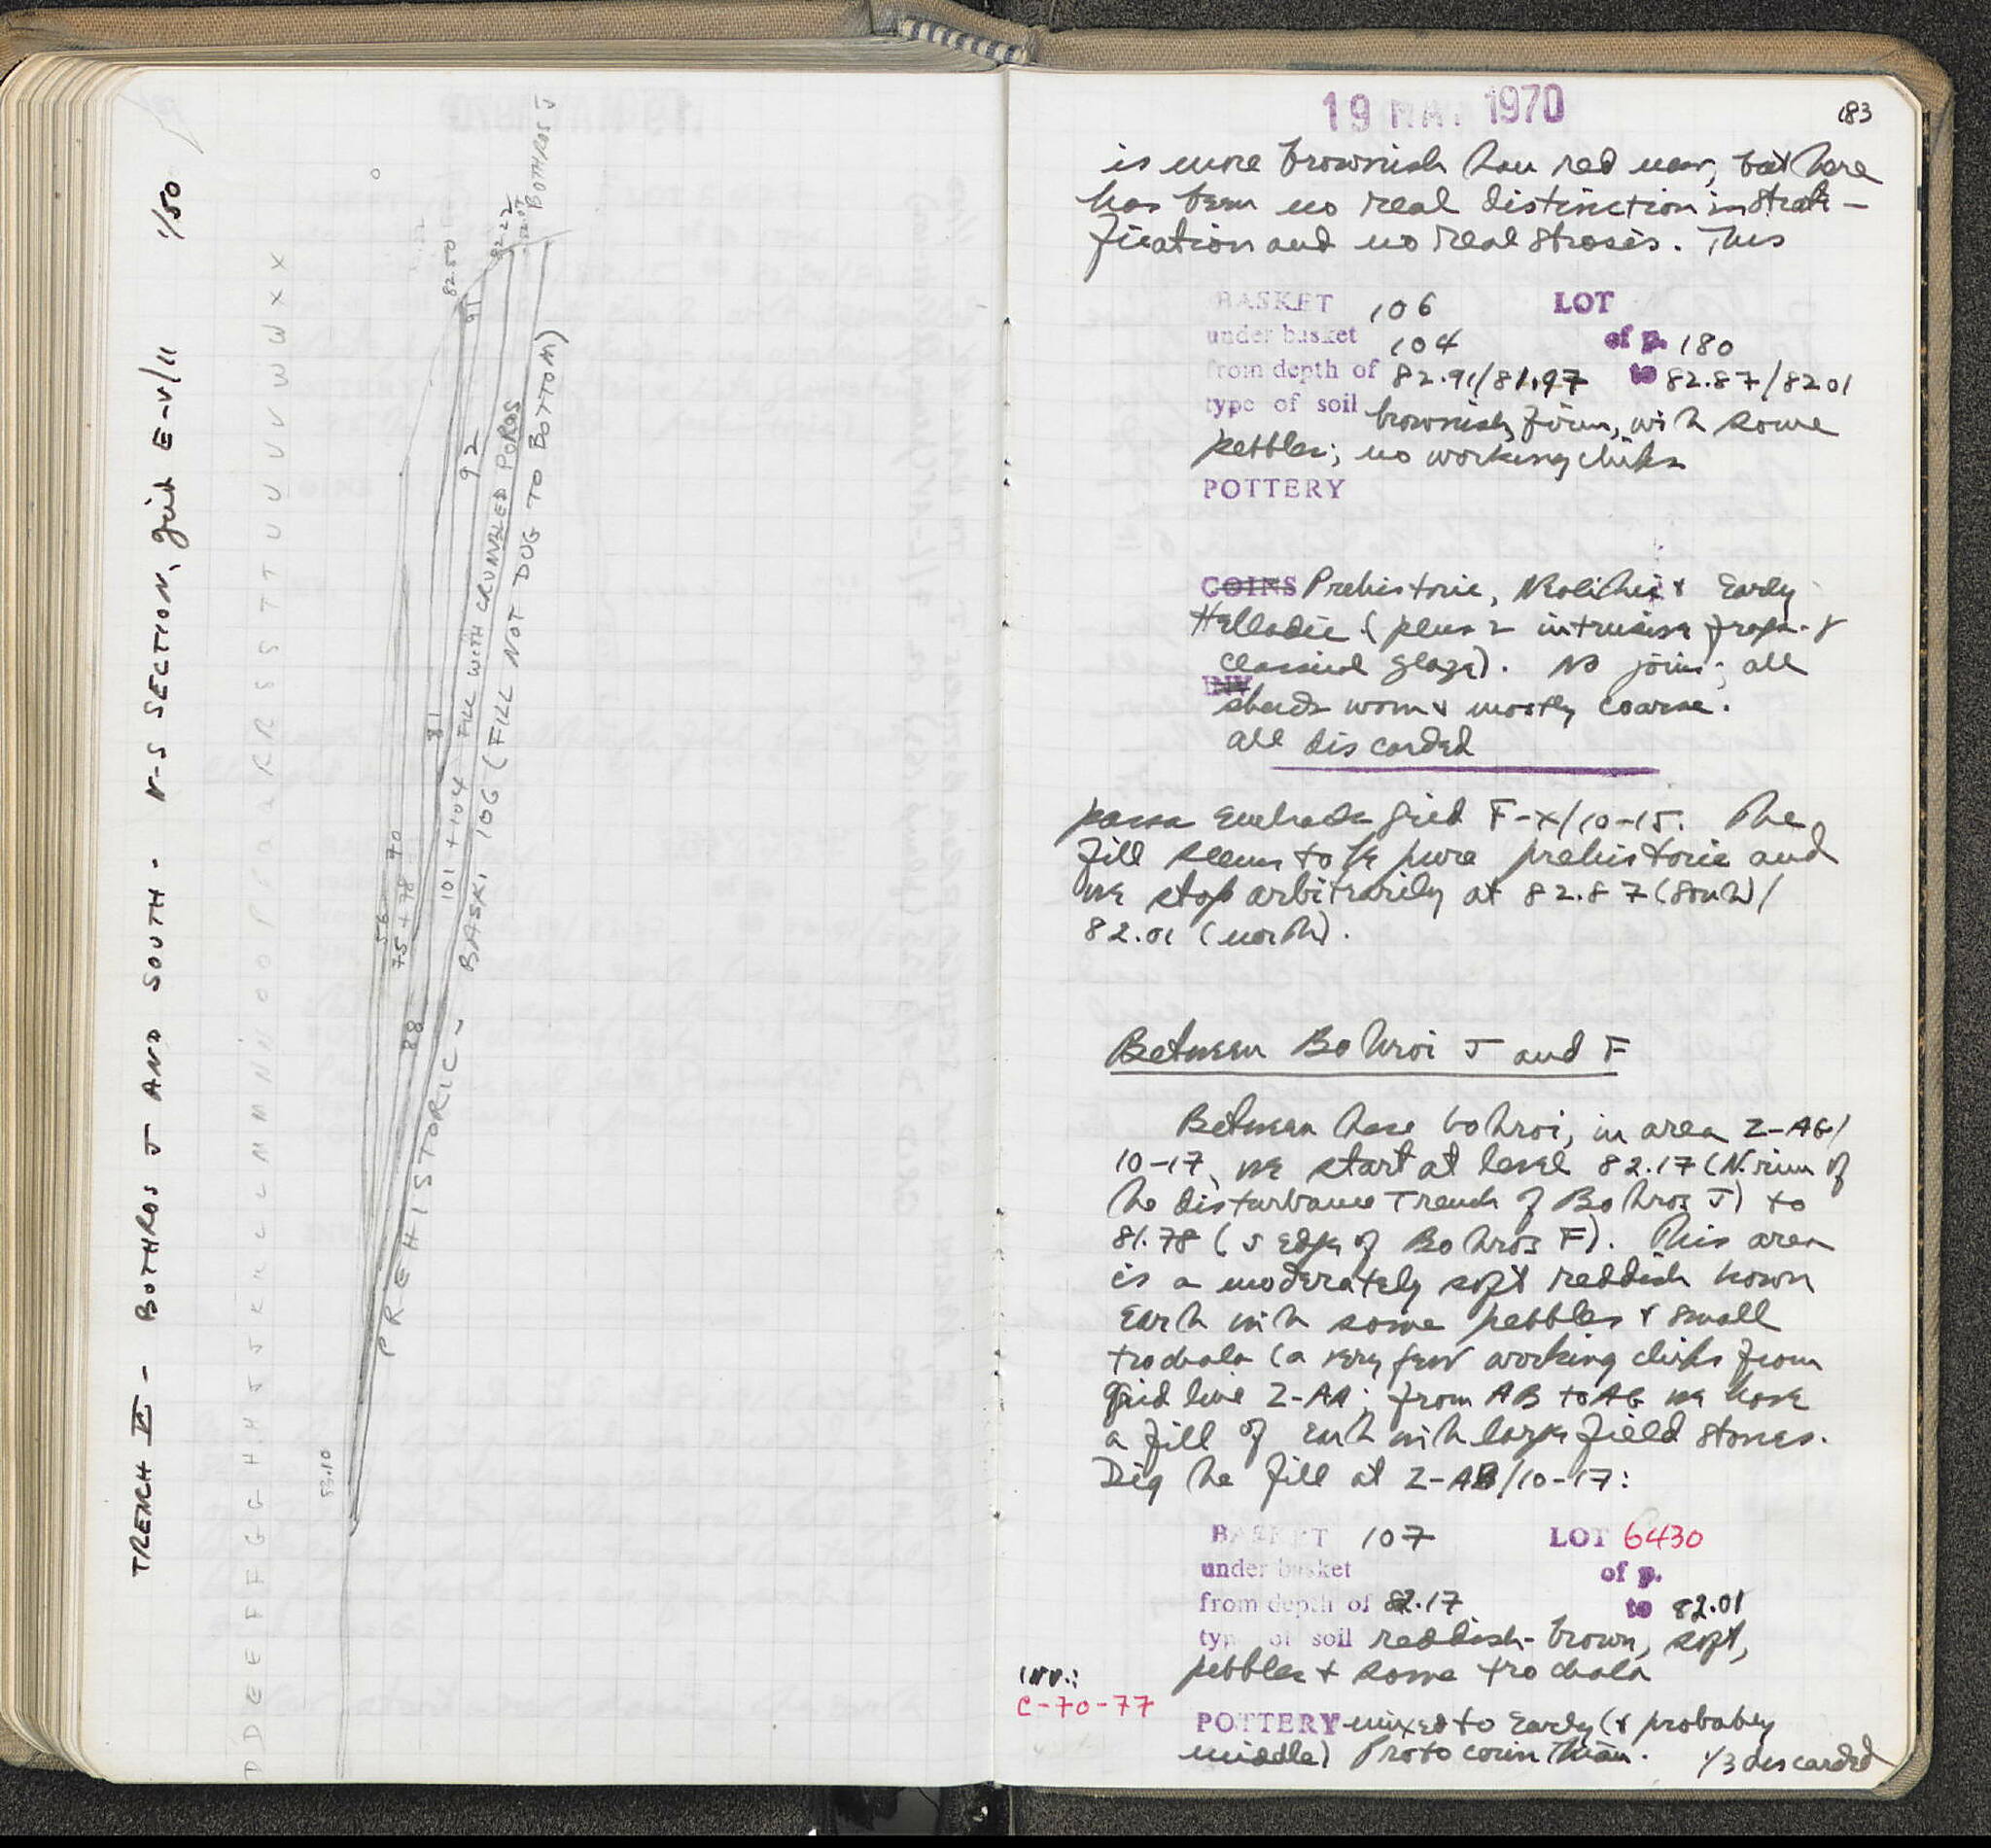 TRENCH VI - BOTHROS J AND SOUTH - N-S SECTION, grid E-V/11 1/50
D D E E F F G G H H J J K K L L M M N N O O P P Q Q R R S S T T U U V V W W X X
83.10
PREHISTORIC -
88
56
75 + 78
90
81
101 + 104 FILL WITH CRUMBLED POROS
BASK. 106 (FILL NOT DUG TO BOTTOM)
92
91
82.50
82.22
82.07
BOTHROS J
19 MAY 1970
183
is more brownish than red now, but there
has been no real distinction in strati-
fication and no real strosis. This
BASKET 106 LOT
under basket 104 of p. 180
from depth of 82.91/81.97 to 82.87/82.01
type of soil brownish, firm, with some
pebbles; no working chips
POTTERY
COINS Prehistoric, Neolithic & Early
Helladic (plus 2 intrusive frags. of
classical glaze). No joins; all
INV
sherds worn & mostly coarse.
all discarded
passa embraces grid F-X/10-15. The
fill seems to be pure prehistoric and
we stop arbitrarily at 82.87 (south)/
82.01 (north).
Between Bothroi J and F
Between these bothroi, in area Z-AG/
10-17, we start at level 82.17 (N. rim of
the disturbance trench of Bothros J) to
81.78 (S edge of Bothros F). This area
is a moderately soft reddish brown
earth with some pebbles & small
trochala (a very few working chips from
grid line Z-AA; from AB to AG we have
a fill of earth with large field stones.
Dig the fill at Z-AB/10-17:
BASKET 107 LOT 6430
under basket of p.
from depth of 82.17 to 82.01
type of soil reddish-brown, soft,
pebbles + some trochala
INV.:
C-70-77
POTTERY - mixed to Early (& probably
middle) Protocorinthian. 1/3 discarded